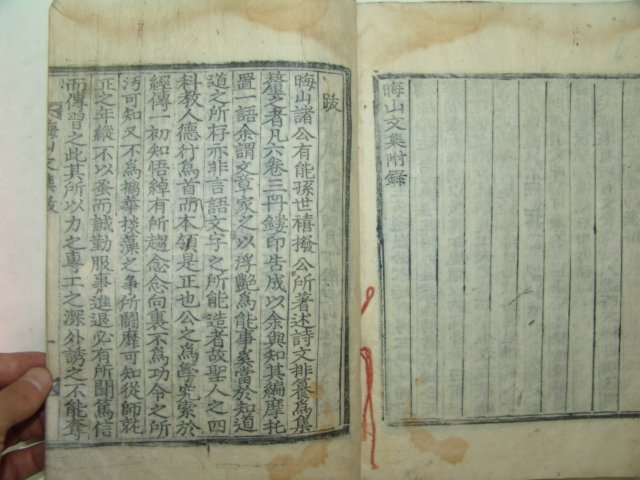 晦山文集附錄
跋
晦山諸公有能孫世禧撥公所著述詩文排纂爲集
釐之者凡六卷三冊鏤印告成以余與知其編摩托
置一語余謂文章家之以浮艶爲能事奚當於知道
道之所杼亦非言語文字之所能造者故聖人之四
科教人德行爲首而本領是正也公之爲學究索於
經傳一初知悟綽有所趨念念向裏不爲功令之所
汚可知又不爲摛華掞藻之爭所鬪靡可知從師就
正之年縱不以蚤而誠勤服事進退必有所聞篤信
而傳習之此其所以力之專工之深外誘之不能奪
晦山文集跋